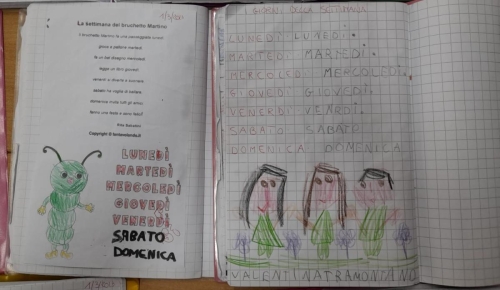 1/3/2021
La settimana del bruchetto Martino
Il bruchetto Martino fa una passeggiata lunedì
gioca a pallone martedì
fa un bel disegno mercoledì
legge un libro giovedì
venerdì si diverte a cucinare
sabato ha voglia di ballare
domenica invita tutti gli amici:
fanno una festa e sono felici!
Rita Sabatini
LUNEDÌ
MARTEDÌ
MERCOLEDÌ
GIOVEDÌ
VENERDÌ
SABATO
DOMENICA
I GIORNI DELLA SETTIMANA
LUNEDÌ LUNEDÌ.
MARTEDÌ MARTEDÌ.
MERCOLEDÌ MERCOLEDÌ.
GIOVEDÌ GIOVEDÌ.
VENERDÌ VENRDÌ.
SABATO SABATO
DOMENICA DOMENICA
VALENTINATRAMONTANO